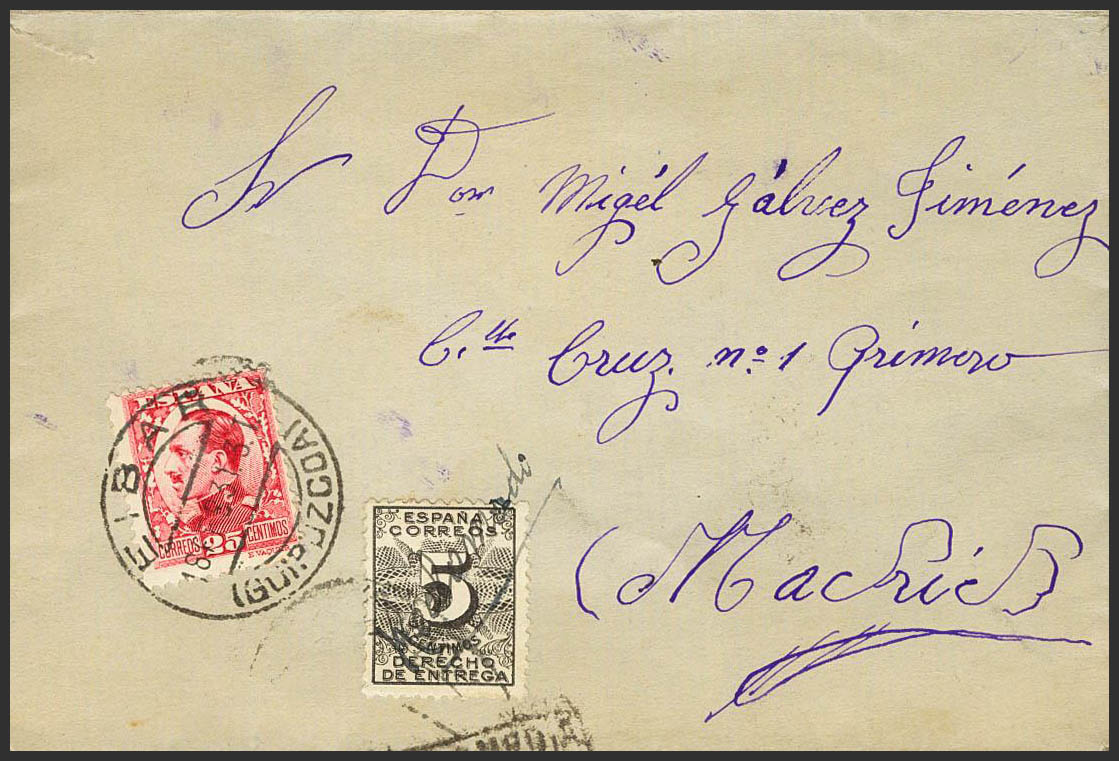 Sr Don Migél Gálvez Jiménez
C.lle Cruz. nº 1 Primero
(Madrid)
ESPAÑA
CORREOS 25 CENTIMOS
EIBAR
(GUIPUZCOA)
ESPAÑA
CORREOS
5
CENTIMOS
DERECHO
DE ENTREGA